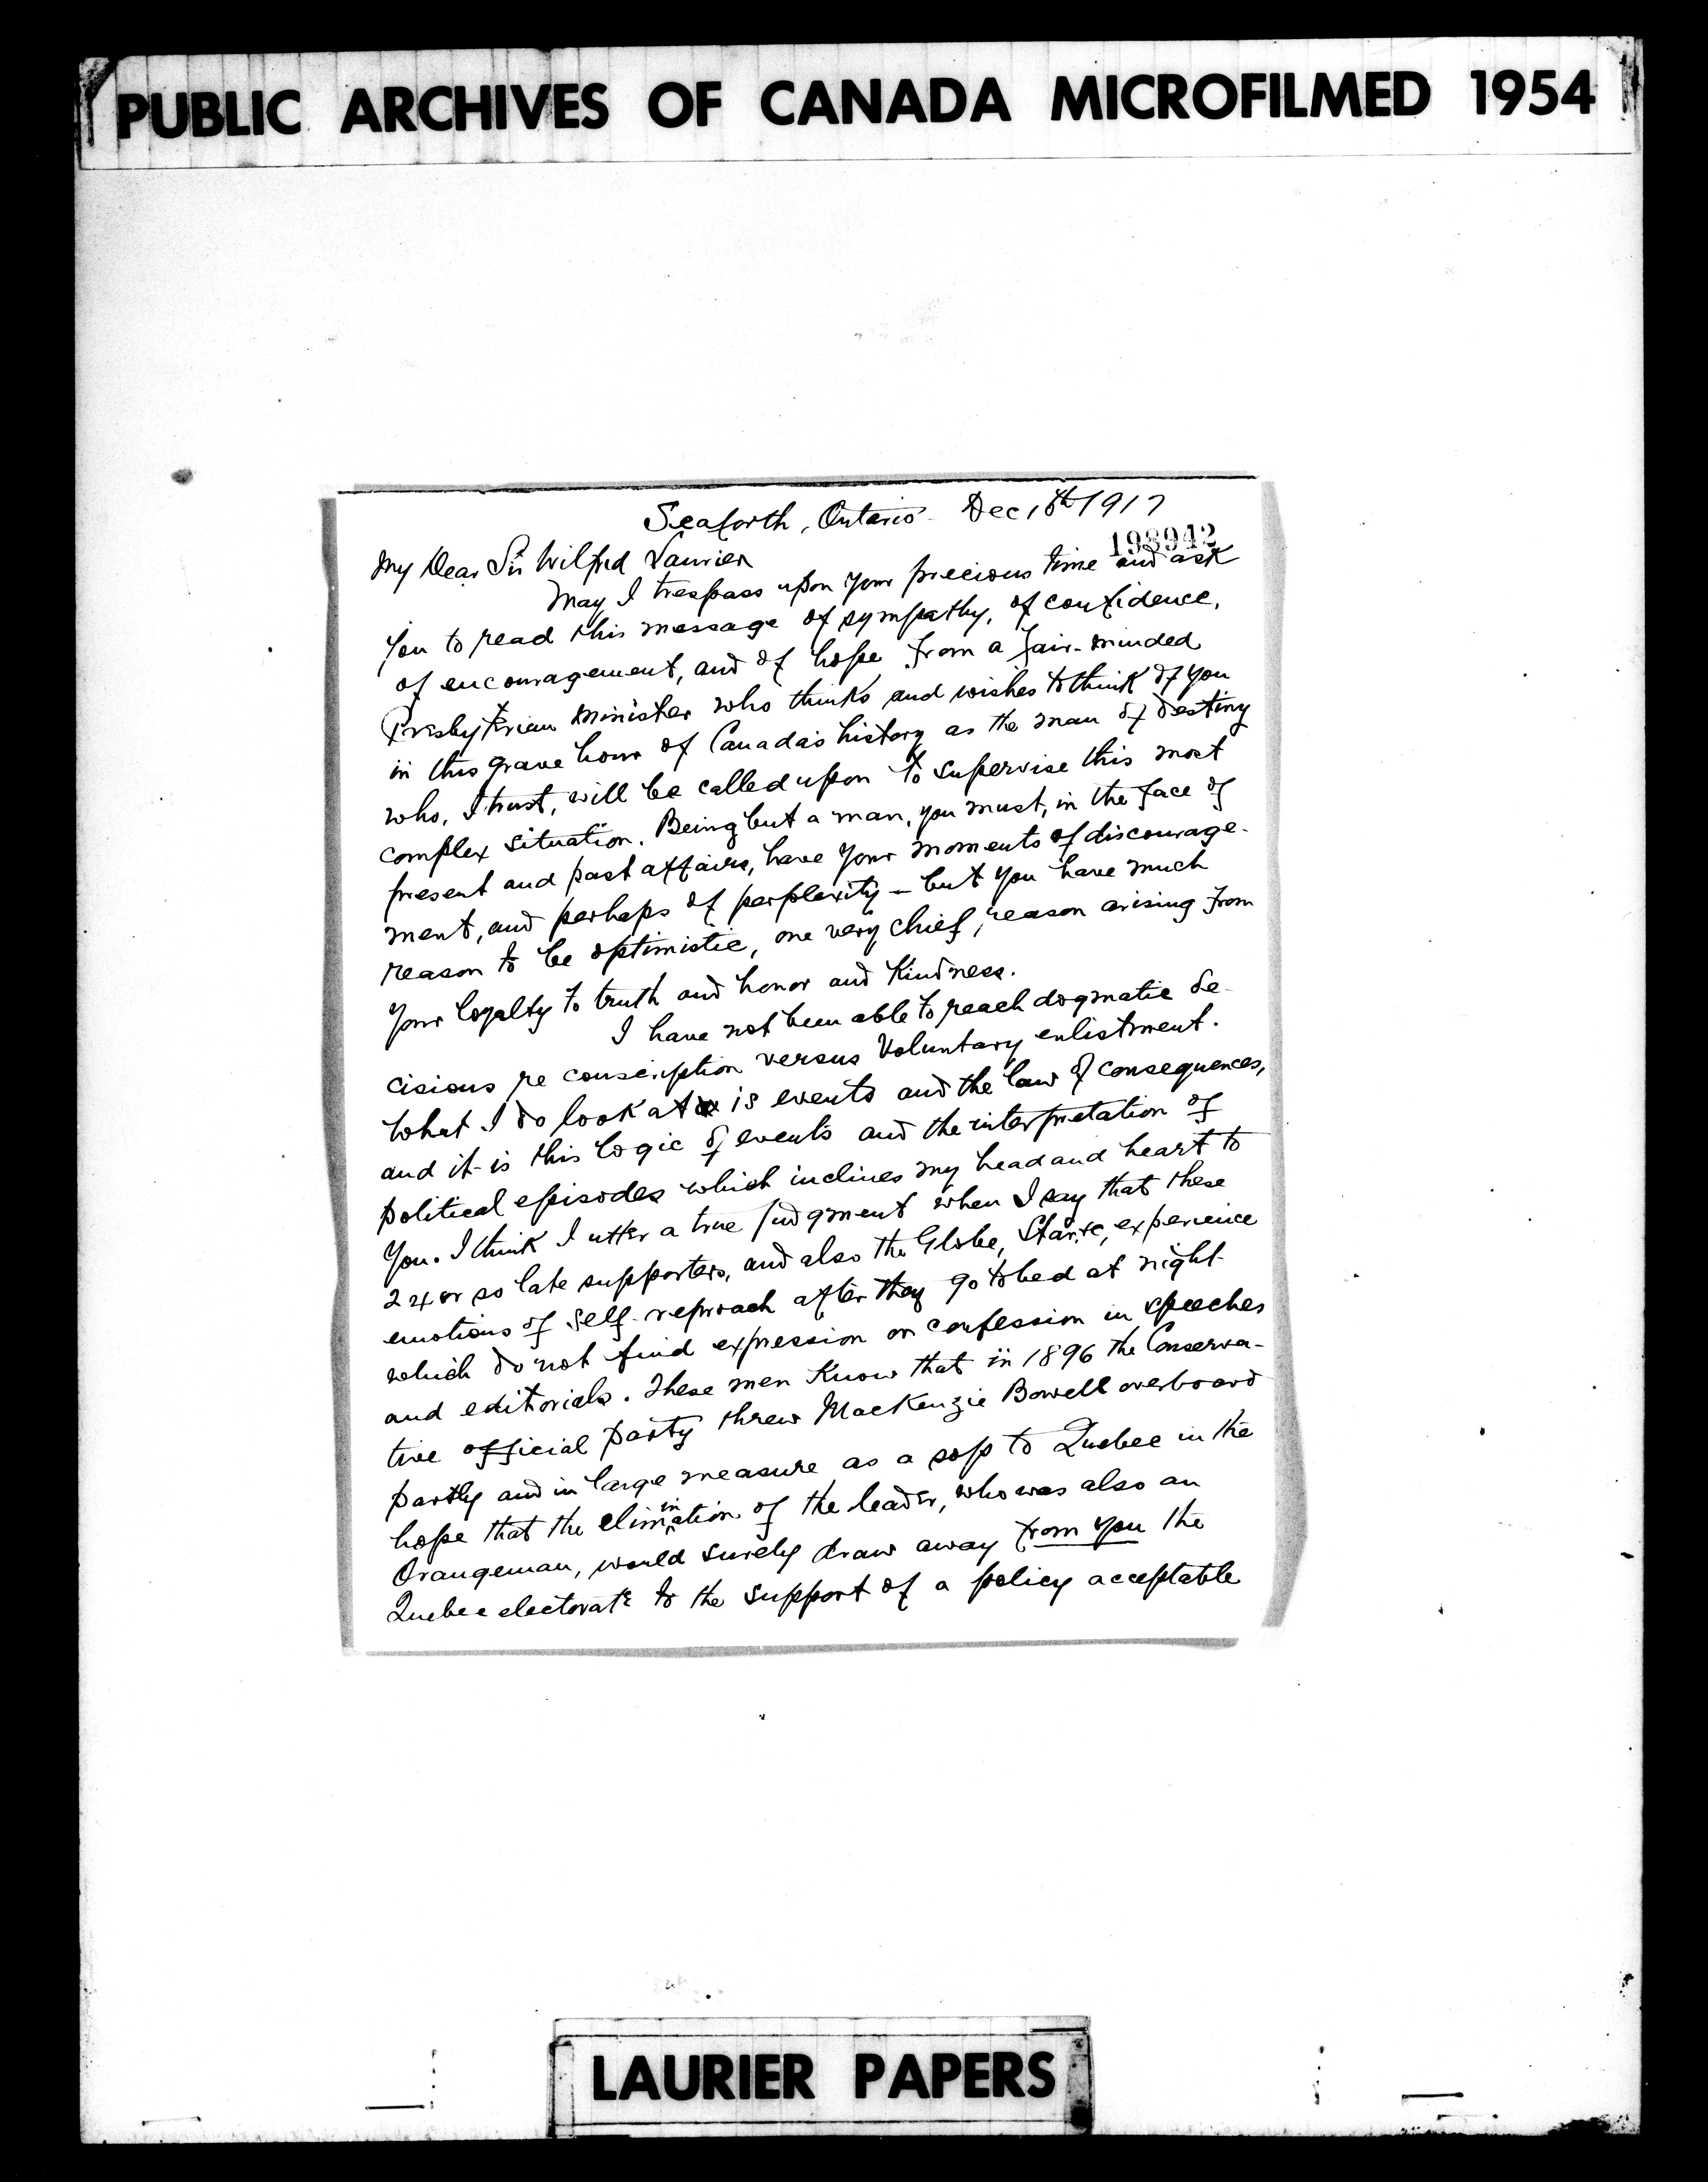 PUBLIC ARCHIVES OF CANADA MICROFILMED 1954
Seaforth, Ontario - Dec 18th 1917
198942
My Dear Sir Wilfrid Laurier
May I trespass upon your precious time and ask
you to read this message of sympathy, of confidence,
of encouragement, and of hope from a fair-minded
Presbyterian minister who thinks and wishes to think of you
in this grave hour of Canada's history as the man of destiny
who, I trust, will be called upon to supervise this most
complex situation. Being but a man, you must, in the face of
present and past affairs, have your moments of discourage-
ment, and perhaps of perplexity - but you have much
reason to be optimistic, one very chief, reason arising from
your loyalty to truth and honor and kindness.
I have not been able to reach dogmatic de-
cisions re conscription versus Voluntary enlistment.
What I do look at is events and the law of consequences,
and it is this logic of events and the interpretation of
political episodes which inclines my head and heart to
you. I think I utter a true judgment when I say that these
24 or so late supporters, and also the Globe, Star, &c, experience
emotions of self-reproach after they go to bed at night
which do not find expression or confession in speeches
and editorials. These men know that in 1896 the Conserva-
tive official party threw MacKenzie Bowell overboard
partly and in large measure as a sop to Quebec in the
hope that the elimination of the leader, who was also an
Orangeman, would surely draw away from you the
Quebec electorate to the support of a policy acceptable
LAURIER PAPERS